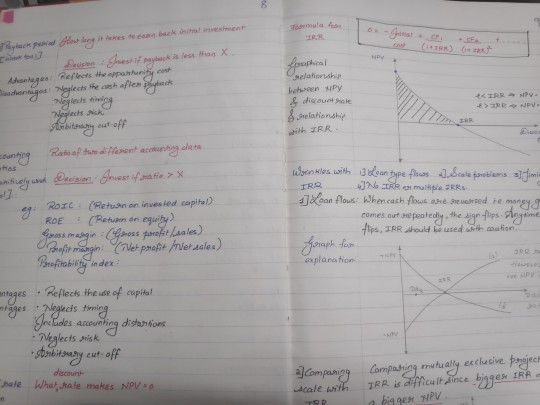 8
Payback period How long it takes to earn back initial investment
Decision: Invest if payback is less than X.
Advantages: Reflects the opportunity cost
Neglects the cash after payback
Neglects timing
Neglects risk
Arbitrary cut-off
Ratio of two different accounting data
Decision: Invest if ratio > X
eg: ROIC : (Return on invested capital)
ROE : (Return on equity)
Gross margin : (Gross profit/sales)
Profit margin: (Net profit/Net sales)
Profitability index:
• Reflects the use of capital
• Neglects timing
Includes accounting distortions
• Neglects risk
• Arbitrary cut-off
discount
What rate makes NPV=0
Formula for
IRR
Graphical
relationship
between NPV
& discount rate
& relationship
with IRR.
NPV
IRR
Wrinkles with 1] Loan type flows 2] Scale problems
IRR 4] No IRR or multiple IRRs
1] Loan flows: When cash flows are reversed i.e money
comes out repeatedly, the sign flips. Anytime
flips, IRR should be used with caution.
Graph for
explanation.
+NPV
IRR
-NPV
2] Comparing Comparing mutually exclusive
scale with IRR is difficult since bigger IRR
IRR a bigger NPV.